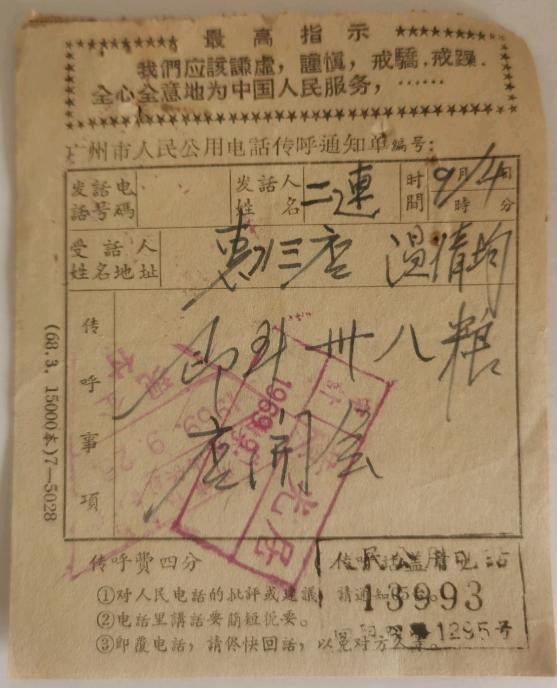 最高指示
我們应該謙虛，謹慎，戒驕，戒躁．
全心全意地为中国人民服务，……
广州市人民公用电話传呼通知单 編号：
发話电
話号碼
发話人
姓 名
二連
时
間
9月4日
时 分
受話人
姓名地址
惠三店 温倩均
传
呼
事
項
即到卅八粮
店開会
1969.9.
1969. 9 26
传呼費四分
①对人民电話的批評或建議，請通知
②电話里講話要簡短扼要。
③即覆电話，請侭快回話，以免对方久等。
公用电話
13993
1295号
(68.3. 15000本)7—5028